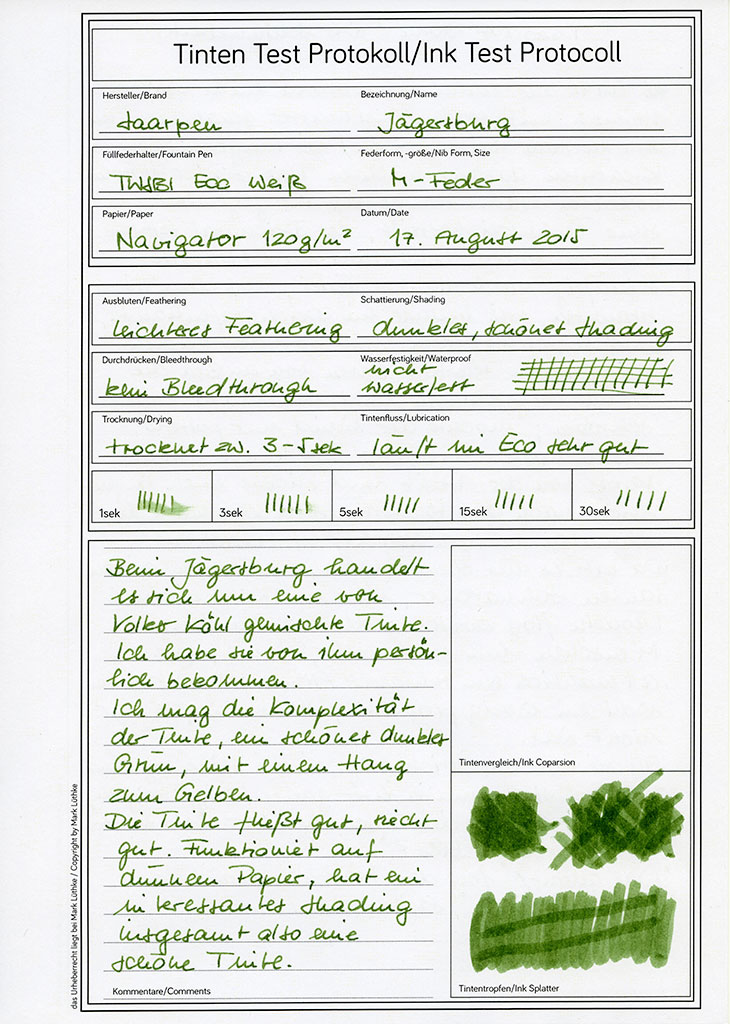 Tinten Test Protokoll/Ink Test Protocoll
Hersteller/Brand
Saarpen
Bezeichnung/Name
Jägersburg
Füllfederhalter/Fountain Pen
TWSBI Eco Weiß
Federform, -größe/Nib Form, Size
M-Feder
Papier/Paper
Navigator 120g/m²
Datum/Date
17. August 2015
Ausbluten/Feathering
leichteres Feathering
Schattierung/Shading
dunkles, schönes Shading
Durchdrücken/Bleedthrough
kein Bleedthrough
Wasserfestigkeit/Waterproof
nicht
wasserfest
Trocknung/Drying
trocknet zw. 3-5sek
Tintenfluss/Lubrication
läuft im Eco sehr gut
1sek
3sek
5sek
15sek
30sek
Beim Jägersburg handelt
es sich um eine von
Volker Köhl gemischte Tinte.
Ich habe sie von ihm persön-
lich bekommen.
Ich mag die Komplexität
der Tinte, ein schönes dunkles
Grün, mit einem Hang
zum Gelben.
Die Tinte fließt gut, riecht
gut. Funktioniert auf
dünnem Papier, hat ein
interessantes Shading
insgesamt also eine
schöne Tinte.
Kommentare/Comments
Tintenvergleich/Ink Coparsion
Tintentropfen/Ink Splatter
das Urheberrecht liegt bei Mark Lüthke / Copyright by Mark Lüthke